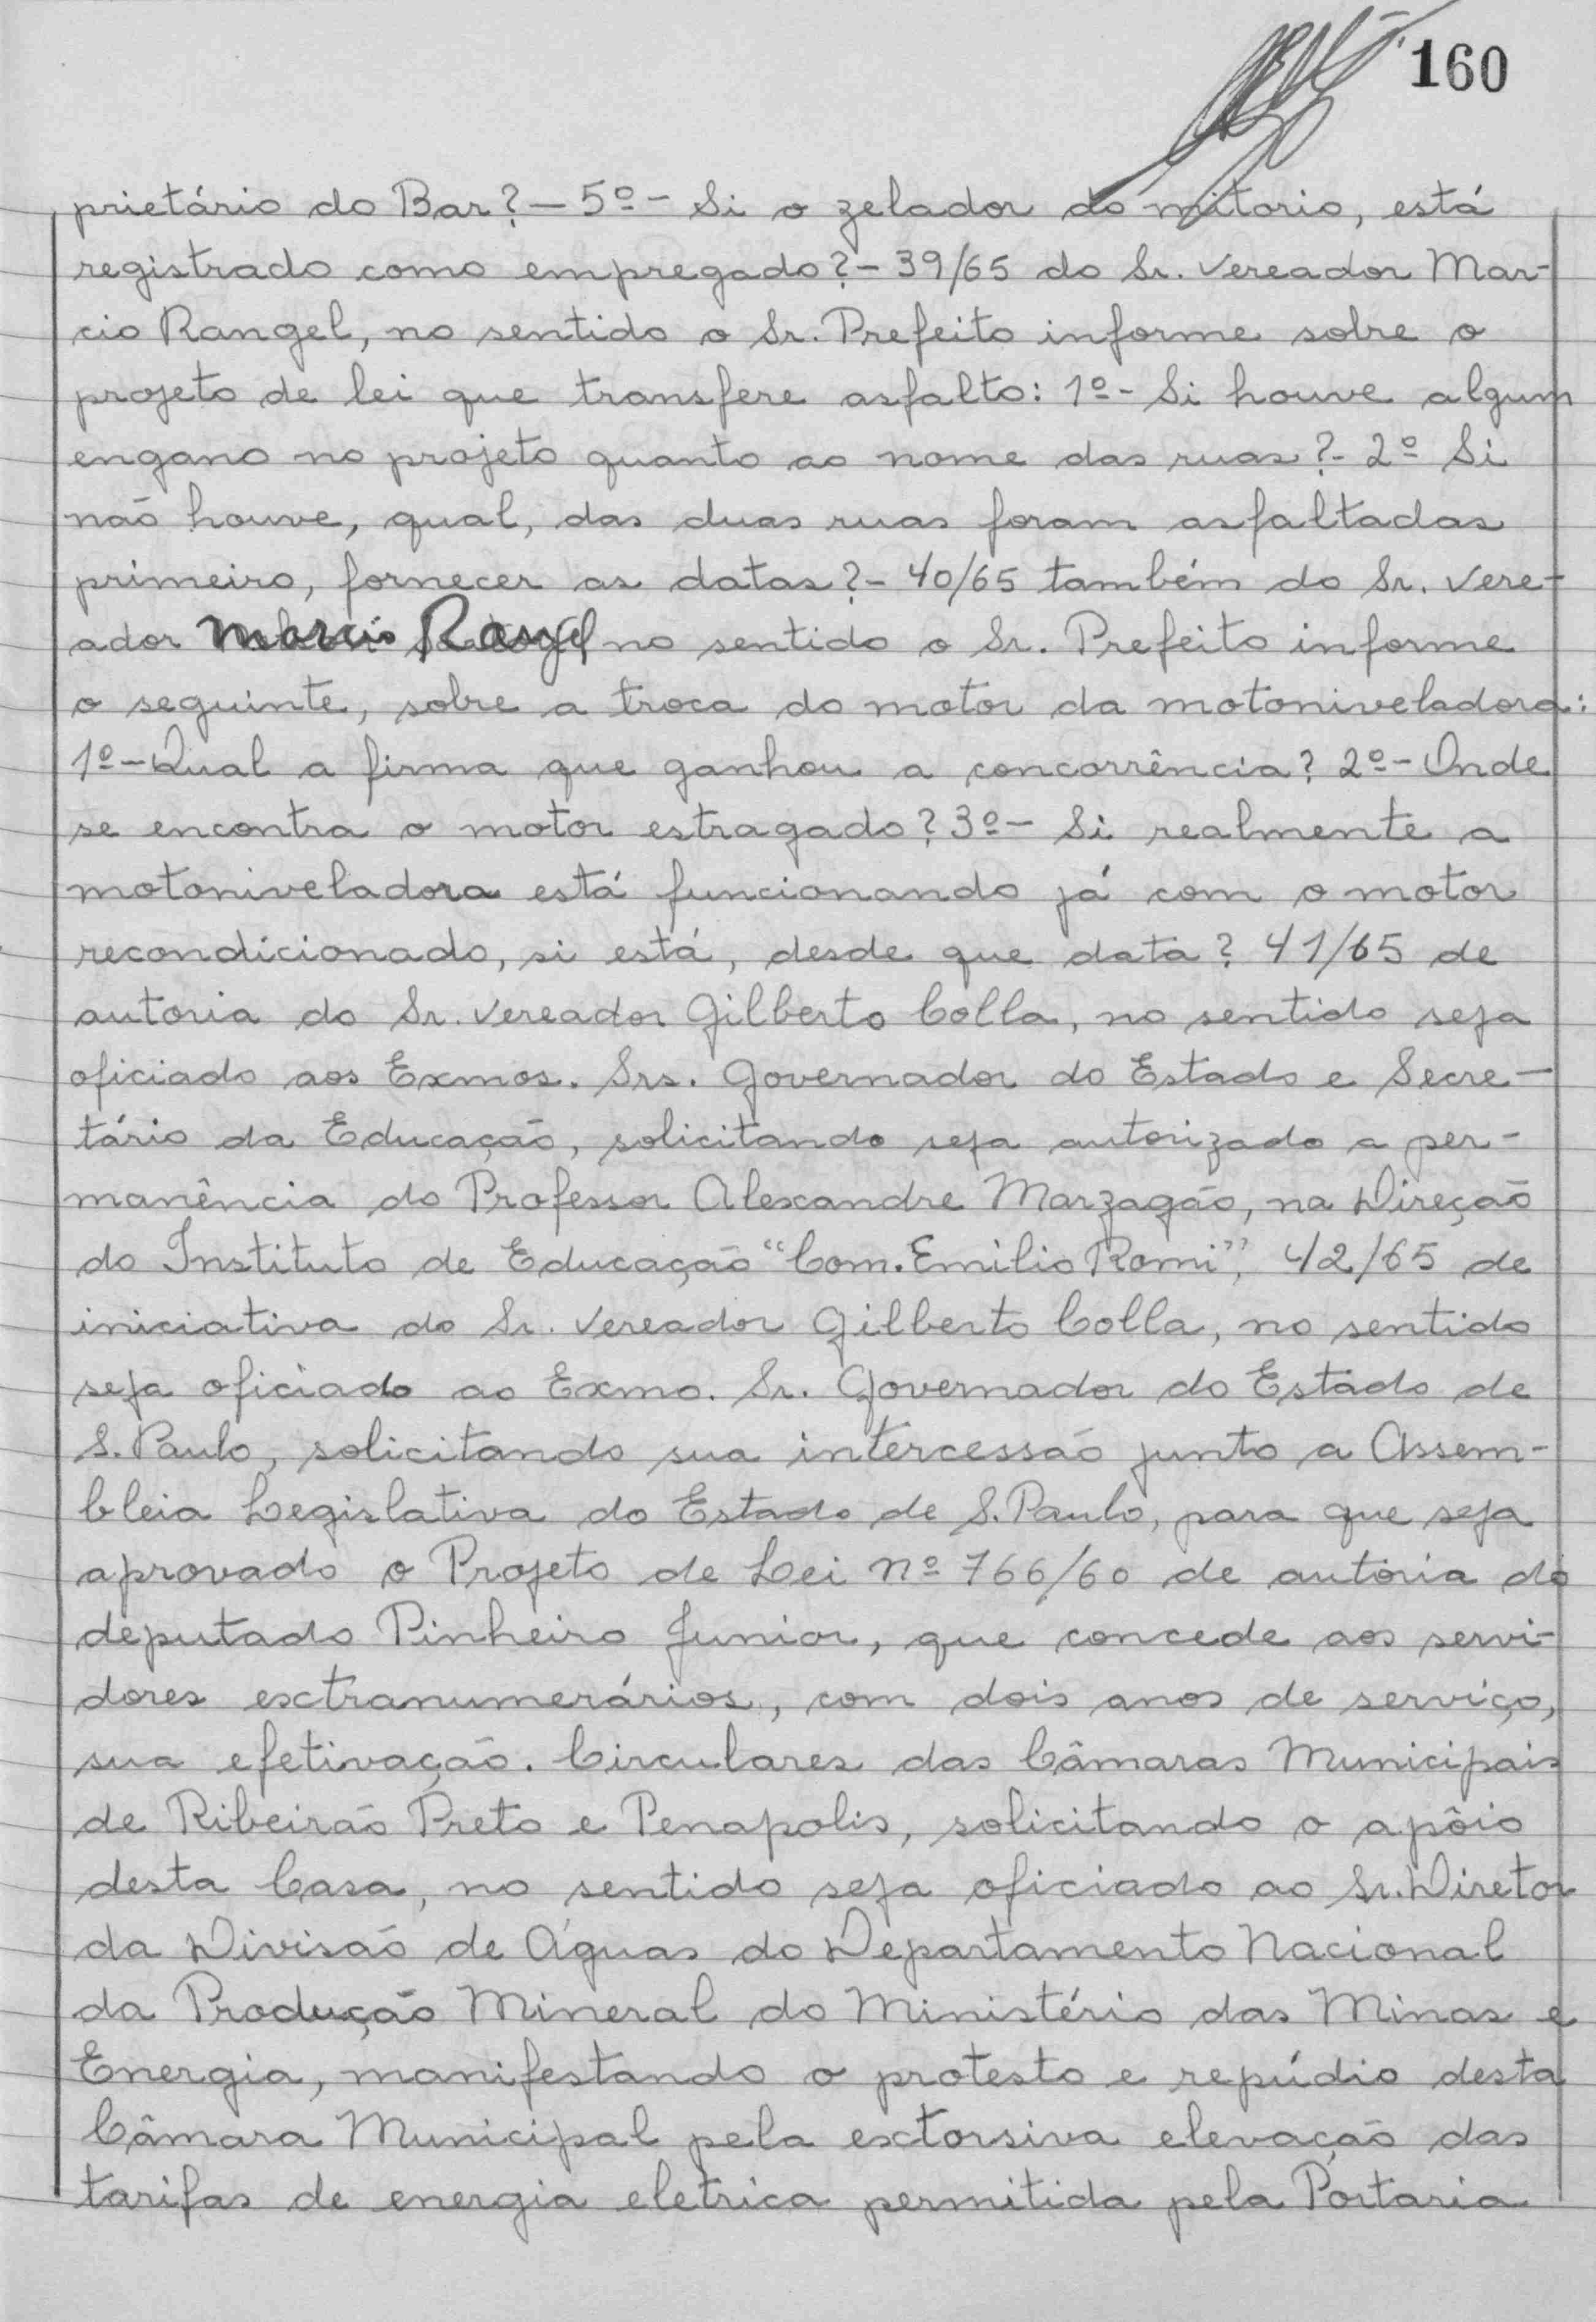 160
prietário do Bar? — 5º - Si o zelador do mitorio, está
registrado como empregado? - 39/65 do Sr. Vereador Mar-
cio Rangel, no sentido o Sr. Prefeito informe sobre o
projeto de lei que transfere asfalto: 1º - Si houve algum
engano no projeto quanto ao nome das ruas? - 2º Si
não houve, qual, das duas ruas foram asfaltadas
primeiro, fornecer as datas? - 40/65 também do Sr. Vere-
ador Marcio Rangel no sentido o Sr. Prefeito informe
o seguinte, sobre a troca do motor da motoniveladora:
1º - Qual a firma que ganhou a concorrência? 2º - Onde
se encontra o motor estragado? 3º - Si realmente a
motoniveladora está funcionando já com o motor
recondicionado, si está, desde que data? 41/65 de
autoria do Sr. Vereador Gilberto Colla, no sentido seja
oficiado aos Exmos. Srs. Governador do Estado e Secre-
tário da Educação, solicitando seja autorizado a per-
manência do Professor Alexandre Marzagão, na Direção
do Instituto de Educação "Com. Emilio Romi", 42/65 de
iniciativa do Sr. Vereador Gilberto Colla, no sentido
seja oficiado ao Exmo. Sr. Governador do Estado de
S. Paulo, solicitando sua intercessão junto a Assem-
bleia Legislativa do Estado de S. Paulo, para que seja
aprovado o Projeto de Lei nº 766/60 de autoria do
deputado Pinheiro Junior, que concede aos servi-
dores extranumerários, com dois anos de serviço,
sua efetivação. Circulares das Câmaras Municipais
de Ribeirão Preto e Penapolis, solicitando o apôio
desta Casa, no sentido seja oficiado ao Sr. Diretor
da Divisão de Águas do Departamento Nacional
da Produção Mineral do Ministério das Minas e
Energia, manifestando o protesto e repúdio desta
Câmara Municipal pela extorsiva elevação das
tarifas de energia eletrica permitida pela Portaria